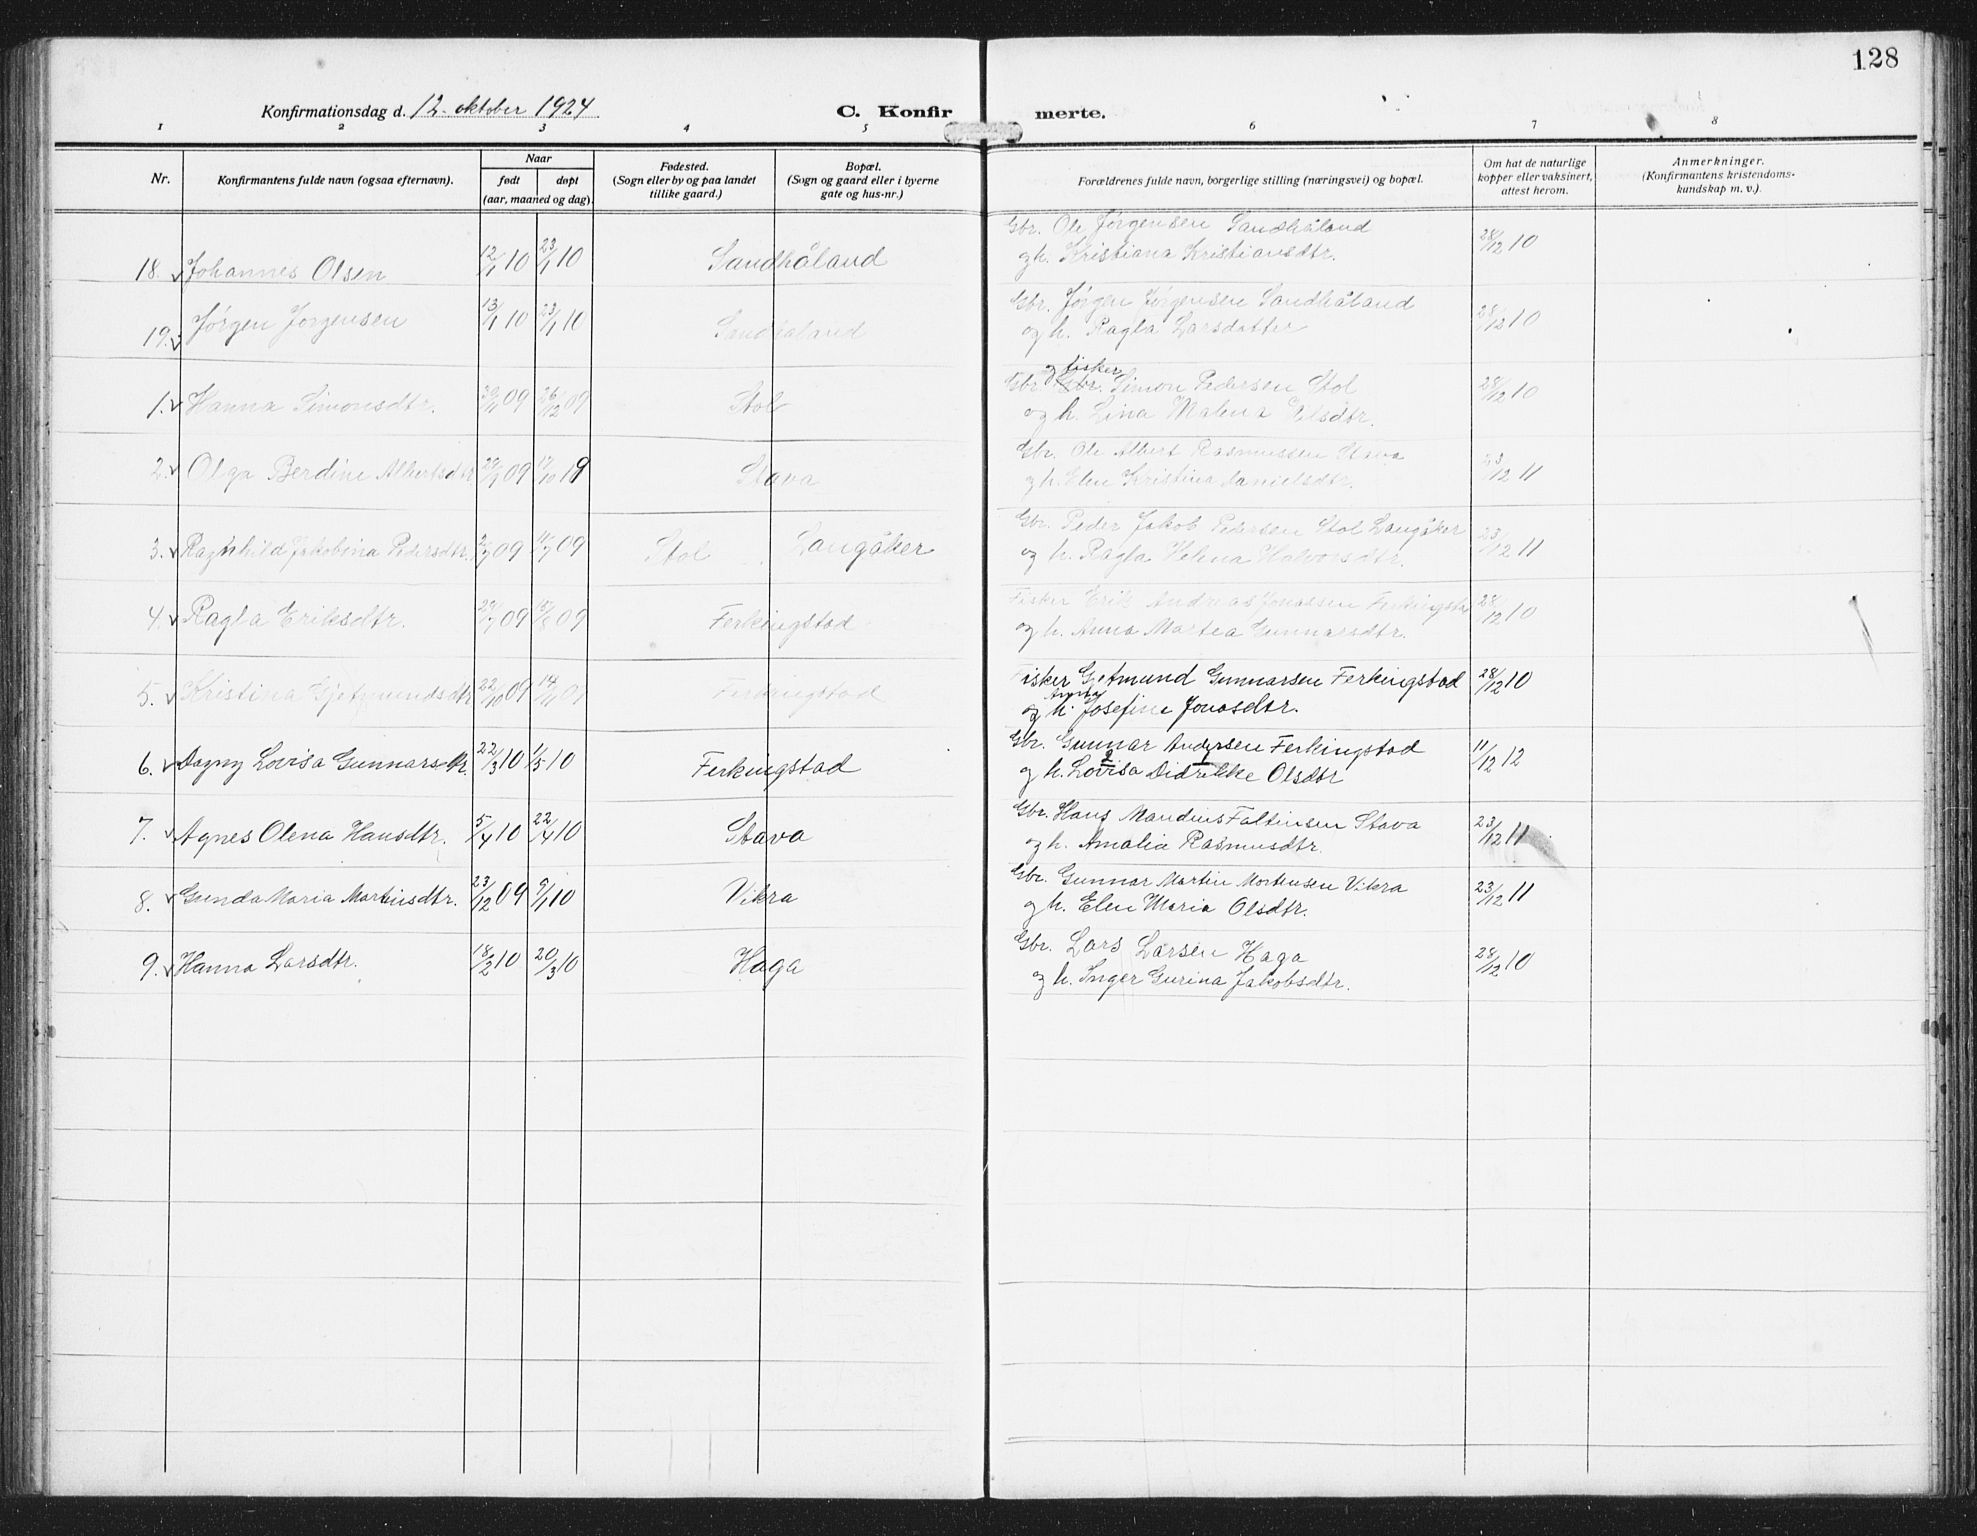 128
Konfirmationsdag d. 12. oktober 1924
C. Konfirmerte.
1 2 3 4 5 6 7 8
Nr.
Konfirmantens fulde navn (ogsaa efternavn).
Naar
født døpt
(aar, maaned og dag)
Fødested.
(Sogn eller by og paa landet
tillike gaard.)
Bopæl.
(Sogn og gaard eller i byerne
gate og hus-nr.)
Forældrenes fulde navn, borgerlige stilling (næringsvei) og bopæl.
Om hat de naturlige
kopper eller vaksinert,
attest herom.
Anmerkninger.
(Konfirmantens kristendoms-
kundskap m. v.).
18. Johannes Olsen 12/1 10 23/1 10 Sandhåland
Gbr. Ole Jørgensen Sandhåland
og h. Kristiana Kristiansdtr. 28/12 10
19. Jørgen Jørgensen 13/1 10 23/1 10 Sandhåland
Gbr. Jørgen Jørgensen Sandhåland
og h. Ragla Larsdatter 28/12 10
1. Hanna Simonsdtr. 09 26/12 09 Stol
og fisker
Gbr. Gbr. Simon Pedersen Stol
og h. Lina Malena 28/12 10
2. Olga Berdine Albertsdtr 09 17/10 19 Stava
Gbr. Ole Albert Rasmussen Stava
og h. Elen Kristina Danielsdtr. 23/12 11
3. Ragnhild Jakobina Pedersdtr. 09 11/7 09 Stol Langåker
Gbr. Peder Jakob Pedersen Stol Langåker
og h. Ragla Helena Halvorsdtr. 23/12 11
4. Ragla Eriksdtr. 09 15/8 09 Ferkingstad
Fisker Erik Andreas Jonassen Ferkingstd
og h. Anna Martea Gunnarsdtr. 28/12 10
5. Kristina Gjetmundsdtr 22/10 09 14/11 09 Ferkingstad
Fisker Gjetmund Gunnarsen Ferkingstad
og h. Josefine Jonasdtr. 28/12 10
6. Dagny Lovisa Gunnarsdtr. 22/3 10 1/5 10 Ferkingstad
Gbr. Gunnar Andersen Ferkingstad
2 1
og h. Lovisa Didrikke Olsdtr 11/12 12
7. Agnes Olena Hansdtr. 5/4 10 22/4 10 Stava
Gbr. Hans Mandius Faltinsen Stava
og h. Amalia Rasmusdtr. 23/12 11
8. Gunda Maria Martinsdtr. 23/12 09 9/1 10 Vikra
Gbr. Gunnar Martin Mortensen Vikra
og h. Elen Maria Olsdtr. 23/12 11
9. Hanna Larsdtr. 18/2 10 20/3 10 Haga
Gbr. Lars Larsen Haga
og h. Inger Gurina Jakobsdtr. 28/12 10